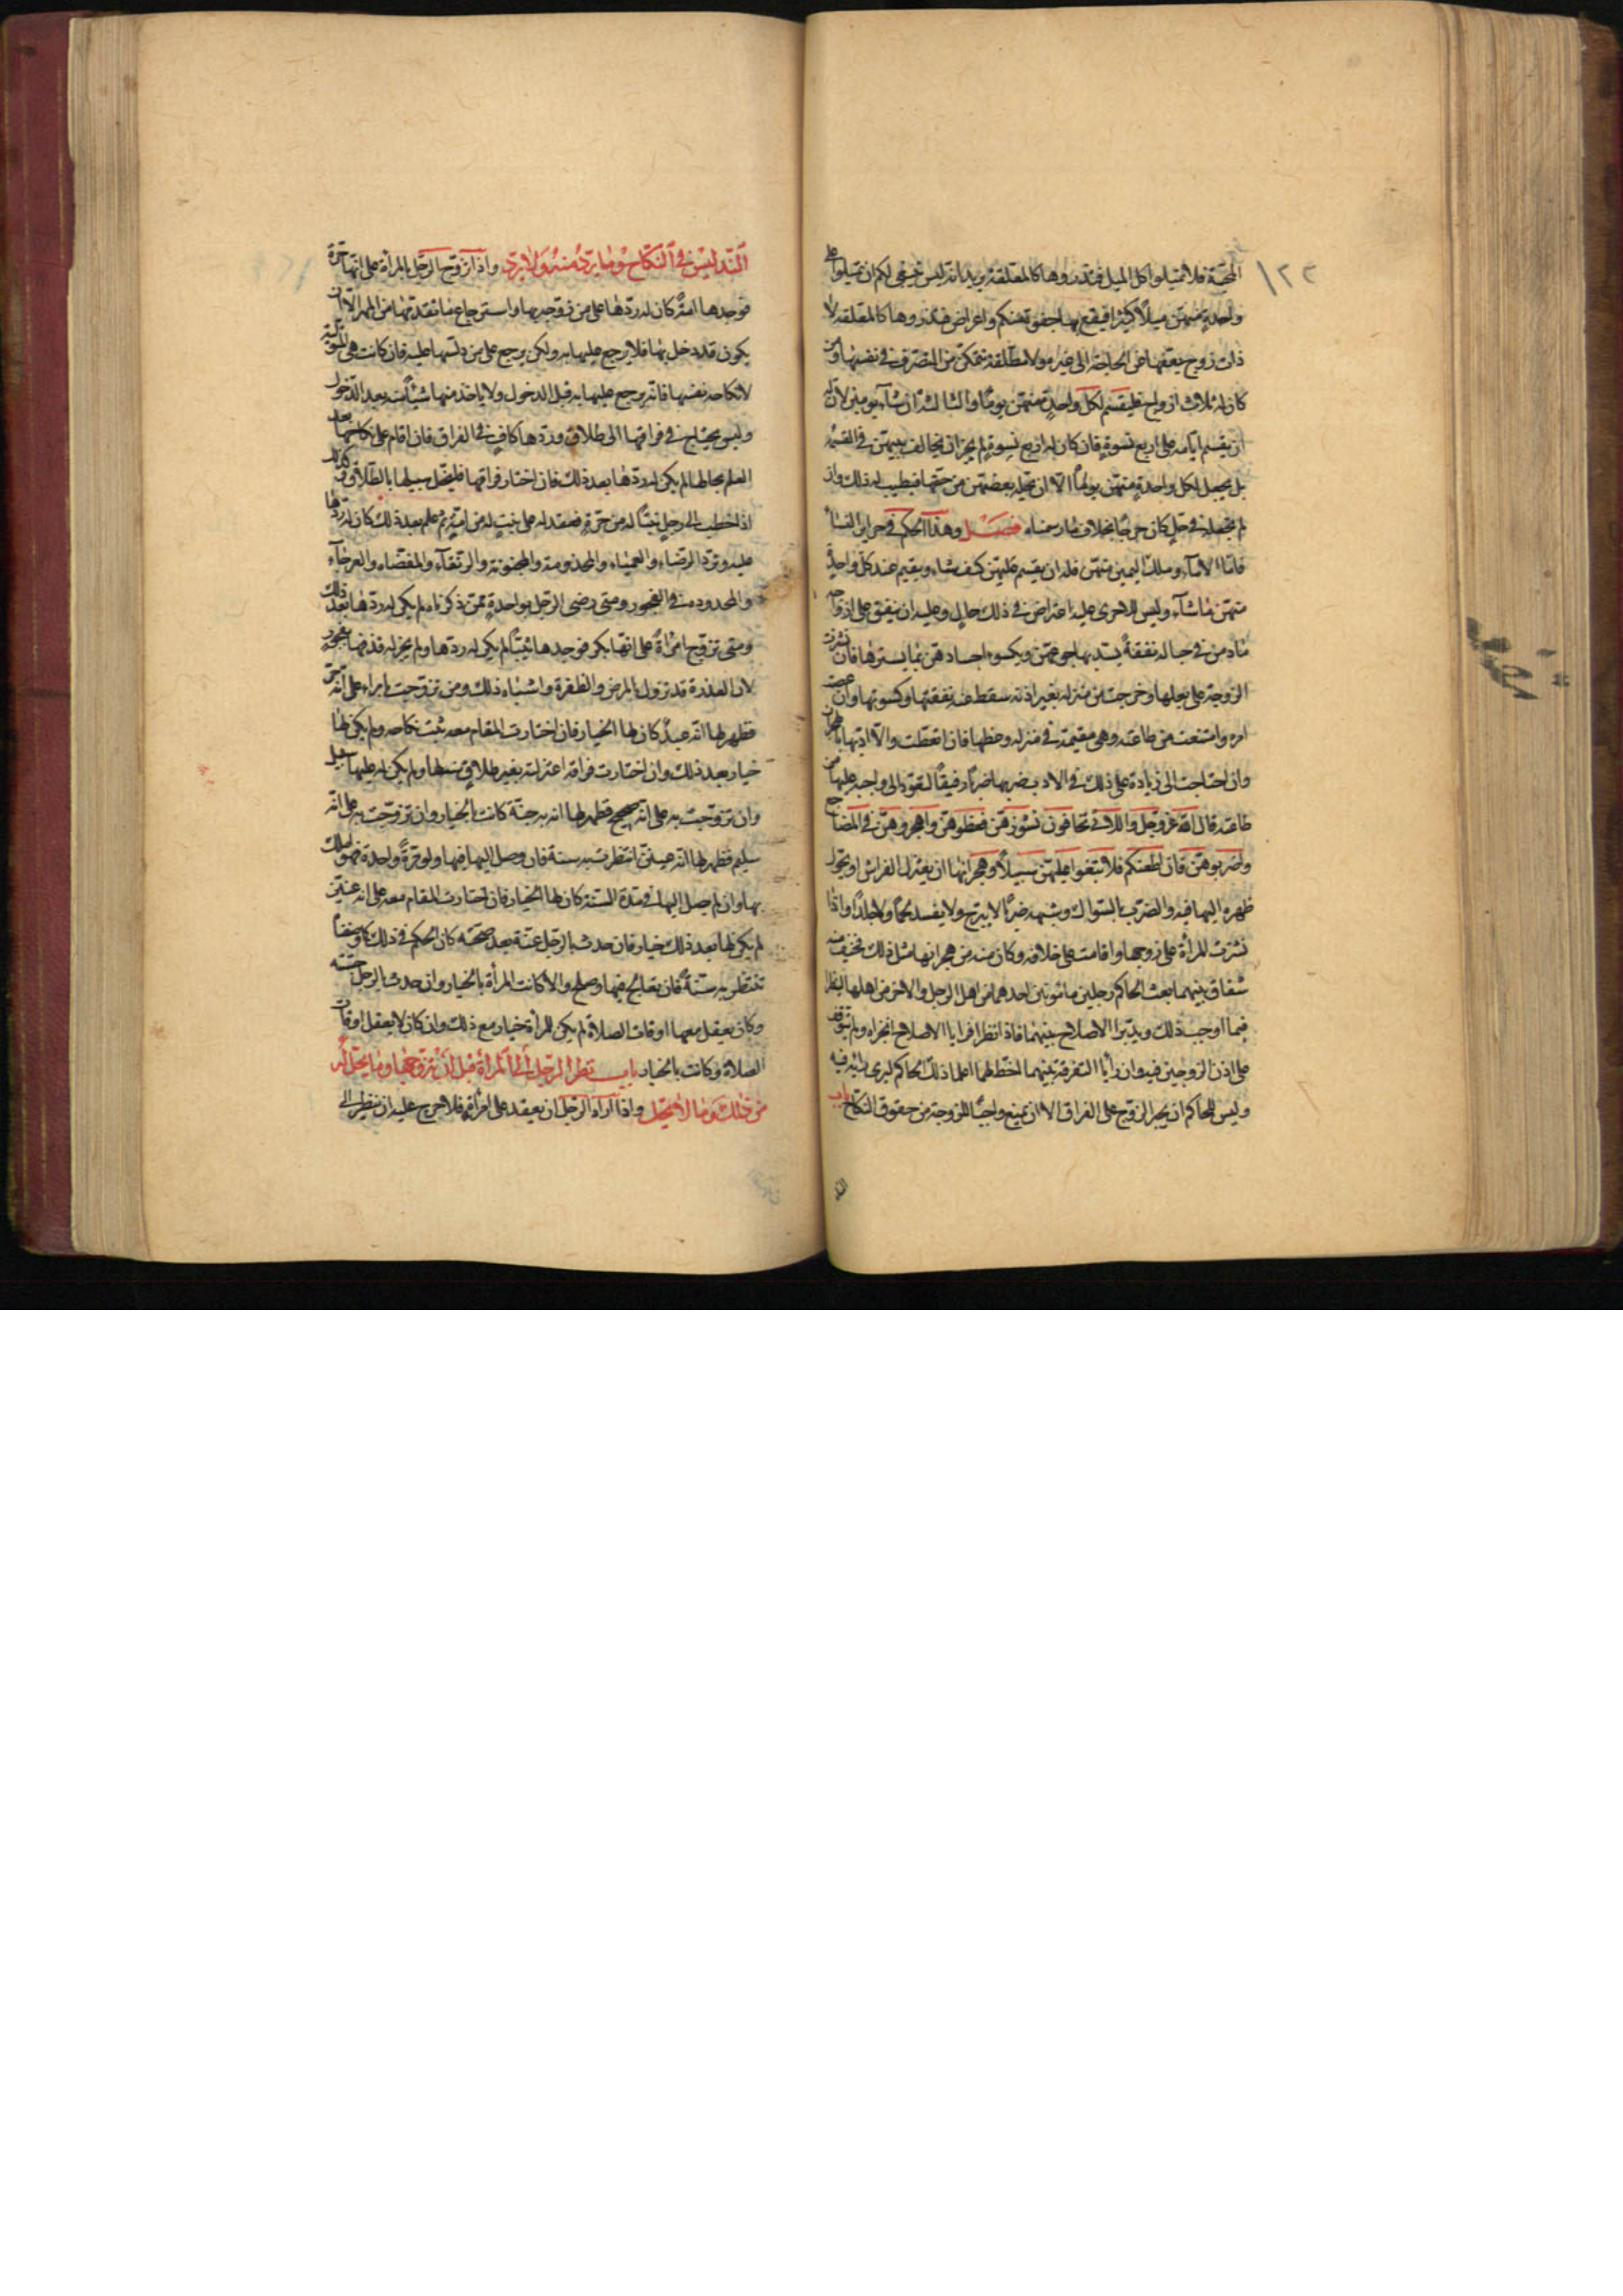 ١٢٢
المحبة فلا تميلوا كل الميل فتذروها كالمعلقة يريد انه ليس ينبغي لكم ان تميلوا على
واحدة منهن ميلًا كثيرًا فيقع بها جفوة منكم واعراض فتذروها كالمعلقة لا
ذات زوج يعفها عن الحاجة الى غيره ولا مطلقة تتمكن من التصرف في نفسها ومن
كان له ثلاث ازواج فليقسم لكل واحدة منهن يومًا والثالثة ان شاء يومين لان له
ان يقسم ايامه على اربع نسوة فان كان له اربع نسوة لم يجز ان يخالف بينهن في القسمة
بل يجعل لكل واحدة منهن يومًا الا ان تحله بعضهن من حقها فيطيب له ذلك وان
لم تجعله في حل كان حرجًا بخلاف ما رسمناه فصل وهذا الحكم في حراير النساء
فاما الاماء وملك اليمين منهن فله ان يقسم عليهن كيف شاء ويقيم عند كل واحدة
منهن ما شاء وليس للاخرى عليه اعتراض في ذلك بحال وعليه ان ينفق على ازواجه
ما دمن في حباله نفقة يسد بها جوعهن ويكسوا اجسادهن بما يسترها فان نشزت
الزوجة على بعلها وخرجت من منزله بغير اذنه سقط عنه نفقتها وكسوتها وان عصت
امره وامتنعت من طاعته وهي مقيمة في منزله وعظها فان اتعظت والا ادبها بالهجران
وان احتاجت الى زيادة على ذلك في الادب ضربها ضربًا رفيقًا لتعود الى واجبه عليها من
طاعته قال الله عز وجل واللاتي تخافون نشوزهن فعظوهن واهجروهن في المضاجع
واضربوهن فان اطعنكم فلا تبغوا عليهن سبيلًا وهجرانها ان يعتزل الفراش او يحول
ظهره اليها فيه والضرب بالسواك وشبهه ضربًا لا يبرح ولا يفسد لحمًا ولا جلدًا واذا
نشزت المرأة على زوجها واقامت على خلافه وكان منه من هجرانها مثل ذلك فخيف منه
شقاق بينهما بعث الحاكم رجلين مامونين احدهما من اهل الرجل والاخر من اهلها لينظرا
فيما اوجب ذلك ويدبرا الاصلاح بينهما فاذا نظرا فرايا الاصلاح انجزاه ولم يتوقف
على اذن الزوجين فيه وان رأيا التفرقة بينهما احظ لهما اعلما ذلك الحاكم ليرى رأيه فيه
وليس للحاكم ان يجبر الزوج على الفراق الا ان يمنع واجبًا للزوجة من حقوق النكاح باب
التد
التدليس في النكاح وما يرد منه وما لا يرد واذا تزوج الرجل بالمرأة على انها حرة
فوجدها امة كان له ردها على من زوجه بها واسترجاع ما نقد منها من المهر الا ان
يكون قد دخل بها فلا يرجع عليها به ولكن يرجع على من دلسها عليه فان كانت هي المتولية
لانكاحه نفسها فانه يرجع عليها به قبل الدخول ولا ياخذ منها شيئًا بعد الدخول
وليس يحتاج في فراقها الى طلاق وردها كاف في الفراق فان اقام على نكاحها بعد
العلم بحالها لم يكن له ردها بعد ذلك فان اختار فراقها فليخل سبيلها بالطلاق وكذلك
اذا خطب الى رجل بنتًا له من حرة فعقد له على بنت له من امة ثم علم بعد ذلك كان له ردها
عليه وترد البرصاء والعمياء والمجذومة والمجنونة والرتقاء والمفضاة والعرجاء
والمحدودة في الفجور ومتى رضي الرجل بواحدة ممن ذكرناه لم يكن له ردها بعد ذلك
ومتى تزوج امرأة على انها بكر فوجدها ثيبًا لم يكن له ردها ولم يجز له قذفها بفجور
لان العذرة قد تزول بالمرض والطفرة واشباه ذلك ومن تزوجت بامرء على انه حر
فظهر لها انه عبد كان لها الخيار فان اختارت المقام معه ثبت نكاحه ولم يكن لها
خيار بعد ذلك وان اختارت فراقه اعتزلته بغير طلاق منه لها ولم يكن له عليها سبيل
وان تزوجت به على انه صحيح فظهر لها انه به جنة كانت بالخيار وان تزوجت به على انه
سليم فظهر لها انه عنين انتظرت به سنة فان وصل اليها فيها ولو مرة واحدة فهو املك
بها وان لم يصل اليها في مدة السنة كان لها الخيار فان اختارت المقام معه على انه عنين
لم يكن لها بعد ذلك خيار فان حدث بالرجل عنة بعد صحته كان الحكم في ذلك كما وصفنا
تنتظر به سنة فان تعالج فيها وصلح والا كانت المرأة بالخيار وان حدث بالرجل جنة
وكان يعقل معها اوقات الصلاة لم يكن للمرأة خيار مع ذلك وان كان لا يعقل اوقات
الصلاة كانت بالخيار باب نظر الرجل الى المرأة قبل ان يتزوجها وما يحل له
من ذلك وما لا يحل واذا اراد الرجل ان يعقد على امرأة فلا حرج عليه ان ينظر الى